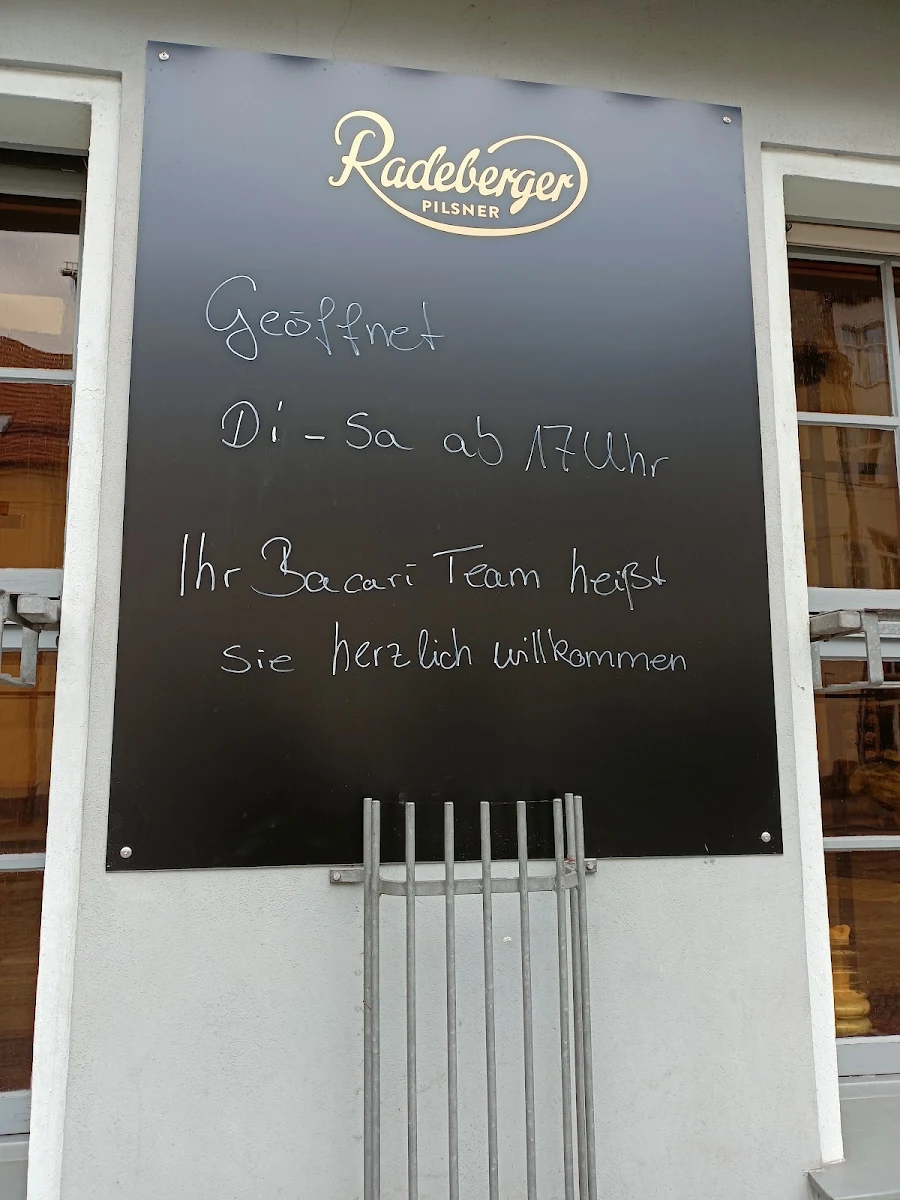 Radeberger
PILSNER
Geöffnet
Di - Sa ab 17 Uhr
Ihr Bacari Team heißt
sie herzlich willkommen